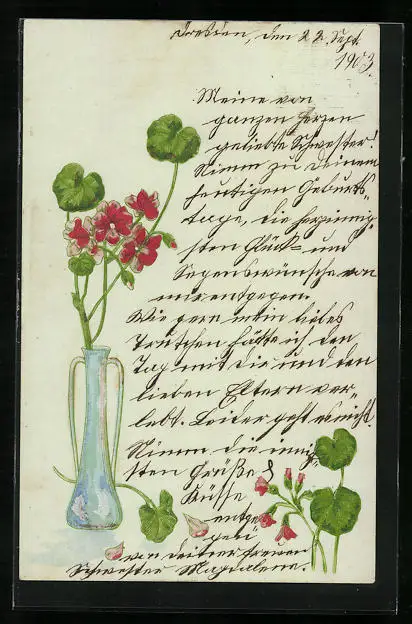 Dresden, den 22. Sept.
1903.
Meine von
ganzen Herzen
geliebte Schwester!
Nimm zu Deinem
heutigen Geburts-
tage, die herzinnig-
sten Glück- und
Segenswünsche von
mir entgegen.
Wie gern mein liebes
Trutchen hätte ich den
Tag mit Dir und den
lieben Eltern ver-
lebt. Leider geht es nicht.
Nimm die innig-
sten Grüße &
Küsse
entge-
gen
von Deiner treuen
Schwester Magdalene.